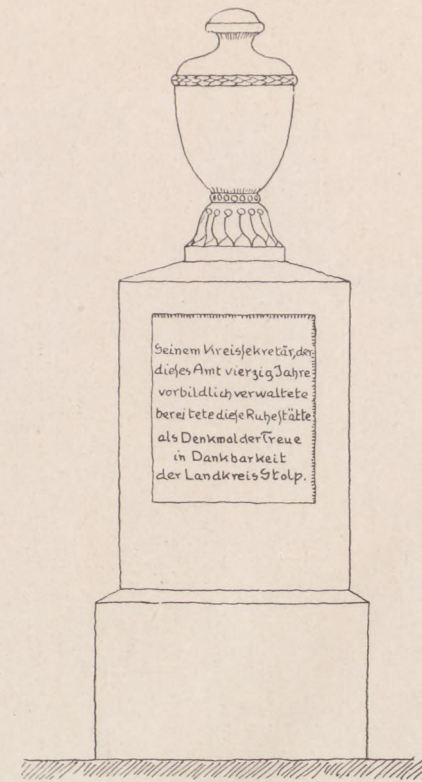 Seinem Kreisſekretär, der
dieſes Amt vierzig Jahre
vorbildlich verwaltete
bereitete dieſe Ruheſtätte
als Denkmal der Treue
in Dankbarkeit
der Landkreis Stolp.